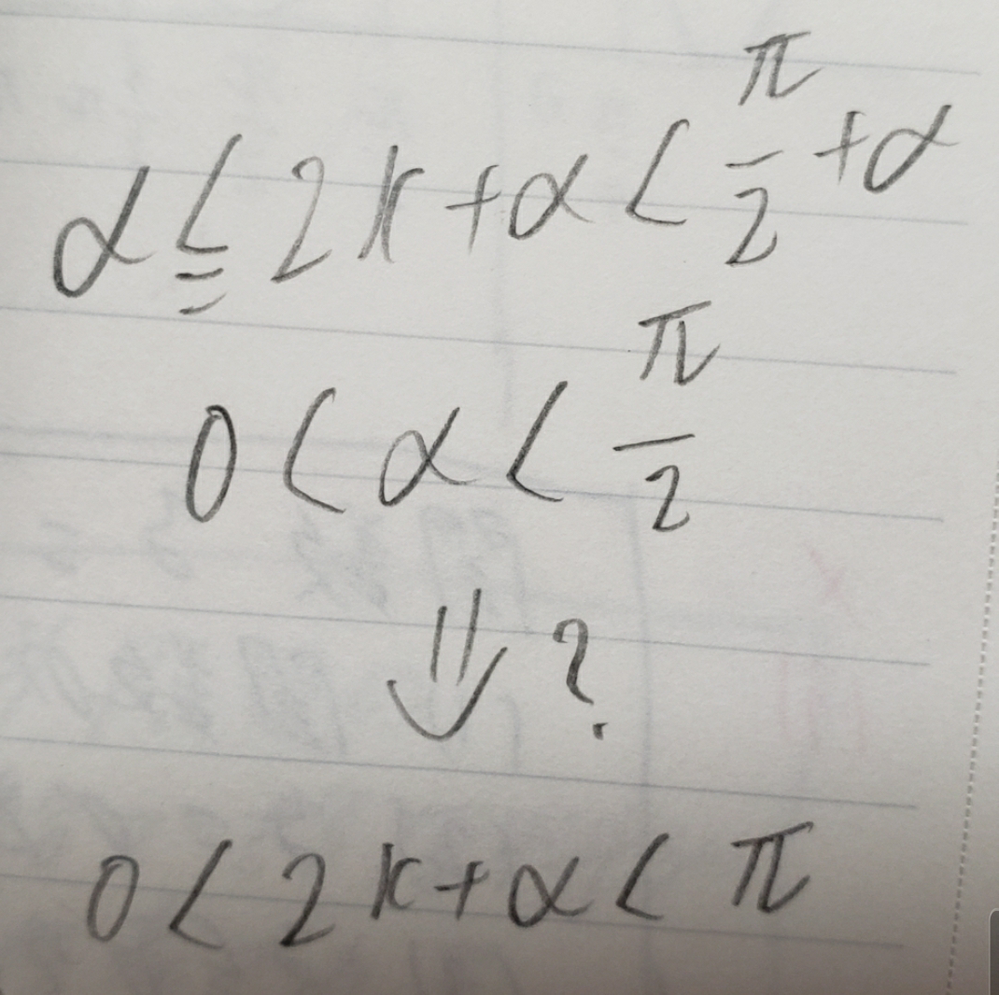 α ≦ 2x + α < π/2 + α
0 < α < π/2
⇓ ?
0 < 2x + α < π